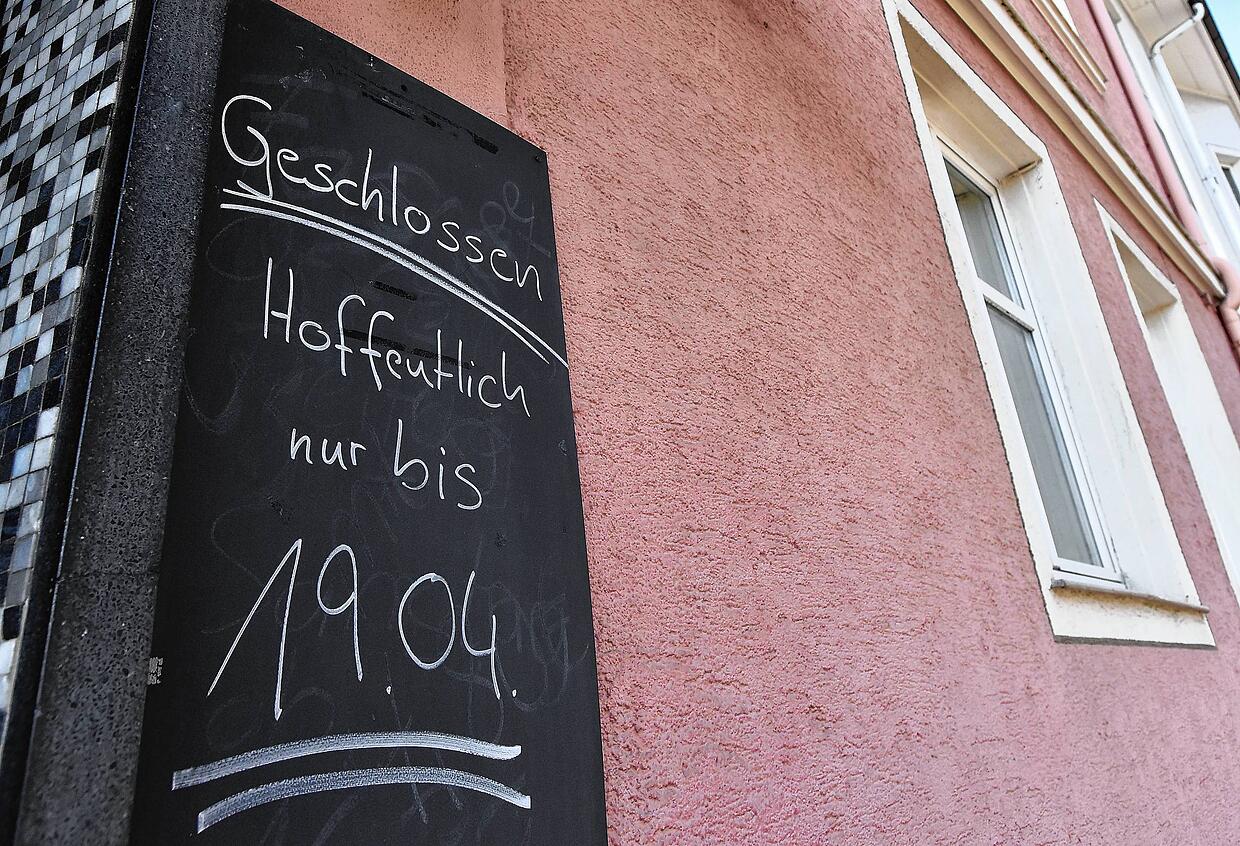 Geschlossen
Hoffentlich
nur bis
19.04.